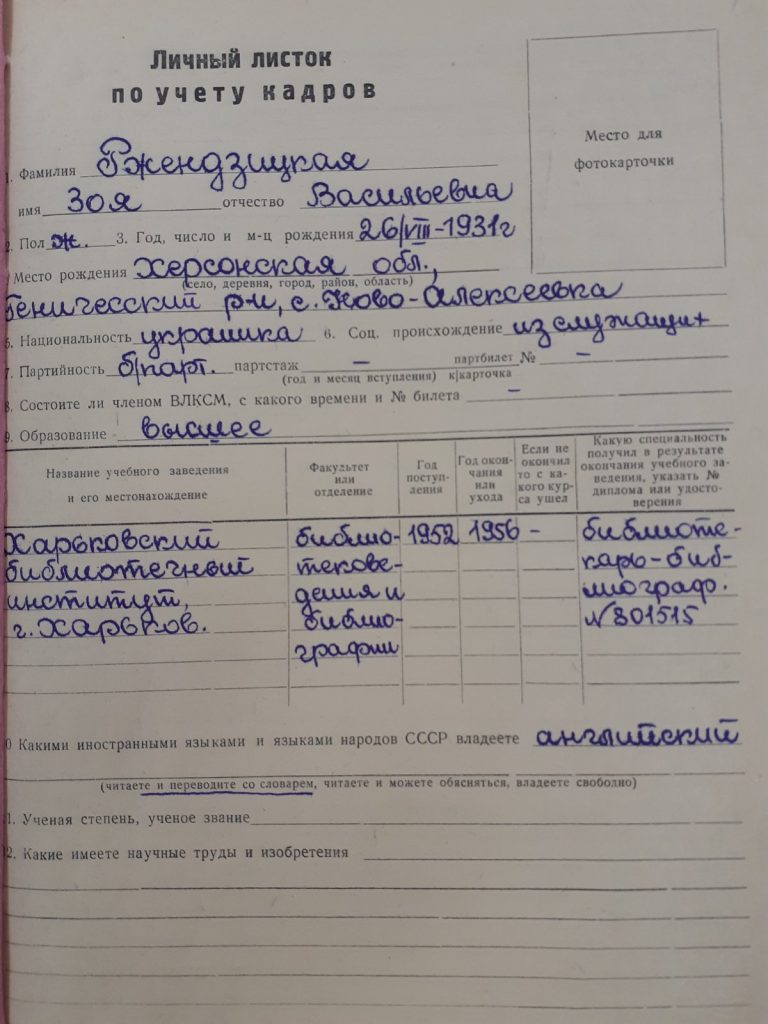 Личный листок
по учету кадров
Место для
фотокарточки
1. Фамилия Ржендзицкая
имя Зоя отчество Васильевна
2. Пол ж. 3. Год, число и м-ц рождения 26/VIII-1931г
Место рождения Херсонская обл.,
(село, деревня, город, район, область)
Генический р-н, с. Ново-Алексеевка
5. Национальность украинка 6. Соц. происхождение из служащих
7. Партийность б/парт. партстаж — партбилет № —
(год и месяц вступления) к|карточка
8. Состоите ли членом ВЛКСМ, с какого времени и № билета —
9. Образование высшее
Название учебного заведения и его местонахождение
Факультет или отделение
Год поступ-ления
Год окон-чания или ухода
Если не окончил то с ка-кого кур-са ушел
Какую специальность получил в результате окончания учебного за-ведения, указать № диплома или удосто-верения
Харьковский библио- 1952 1956 - библиоте-
библиотечный текове- карь-биб-
институт, дения и лиограф.
г. Харьков. библио- N 801515
графии
0 Какими иностранными языками и языками народов СССР владеете английский
(читаете и переводите со словарем, читаете и можете обясняться, владеете свободно)
1. Ученая степень, ученое звание
2. Какие имеете научные труды и изобретения